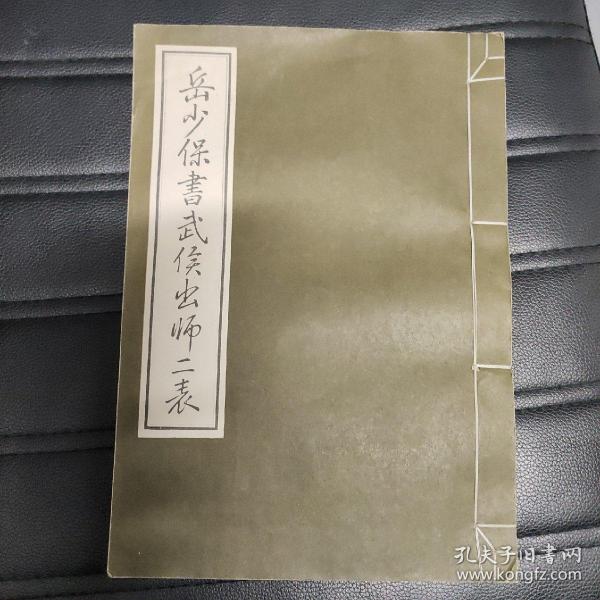 岳少保書武侯出师二表
孔夫子旧書网
www.kongfz.com